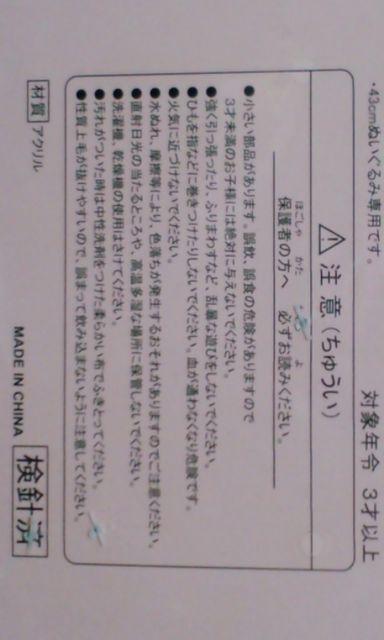 ・43cmぬいぐるみ専用です。
対象年令 3才以上
⚠注意(ちゅうい)
ほごしゃ かた よ
保護者の方へ 必ずお読みください。
●小さい部品があります。誤飲、誤食の危険がありますので
3才未満のお子様には絶対に与えないでください。
●強く引っ張ったり、ふりまわすなど、乱暴な遊びをしないでください。
●ひもを指などに巻きつけたりしないでください。血が通わなくなり危険です。
●火気に近づけないでください。
●水ぬれ、摩擦等により、色落ちが発生するおそれがありますのでご注意ください。
●直射日光の当たるところや、高温多湿な場所に保管しないでください。
●洗濯機、乾燥機の使用はさけてください。
●汚れがついた時は中性洗剤をつけた柔らかい布でふきとってください。
●性質上毛が抜けやすいので、誤まって飲み込まないように注意してください。
材質 アクリル
MADE IN CHINA
検針済